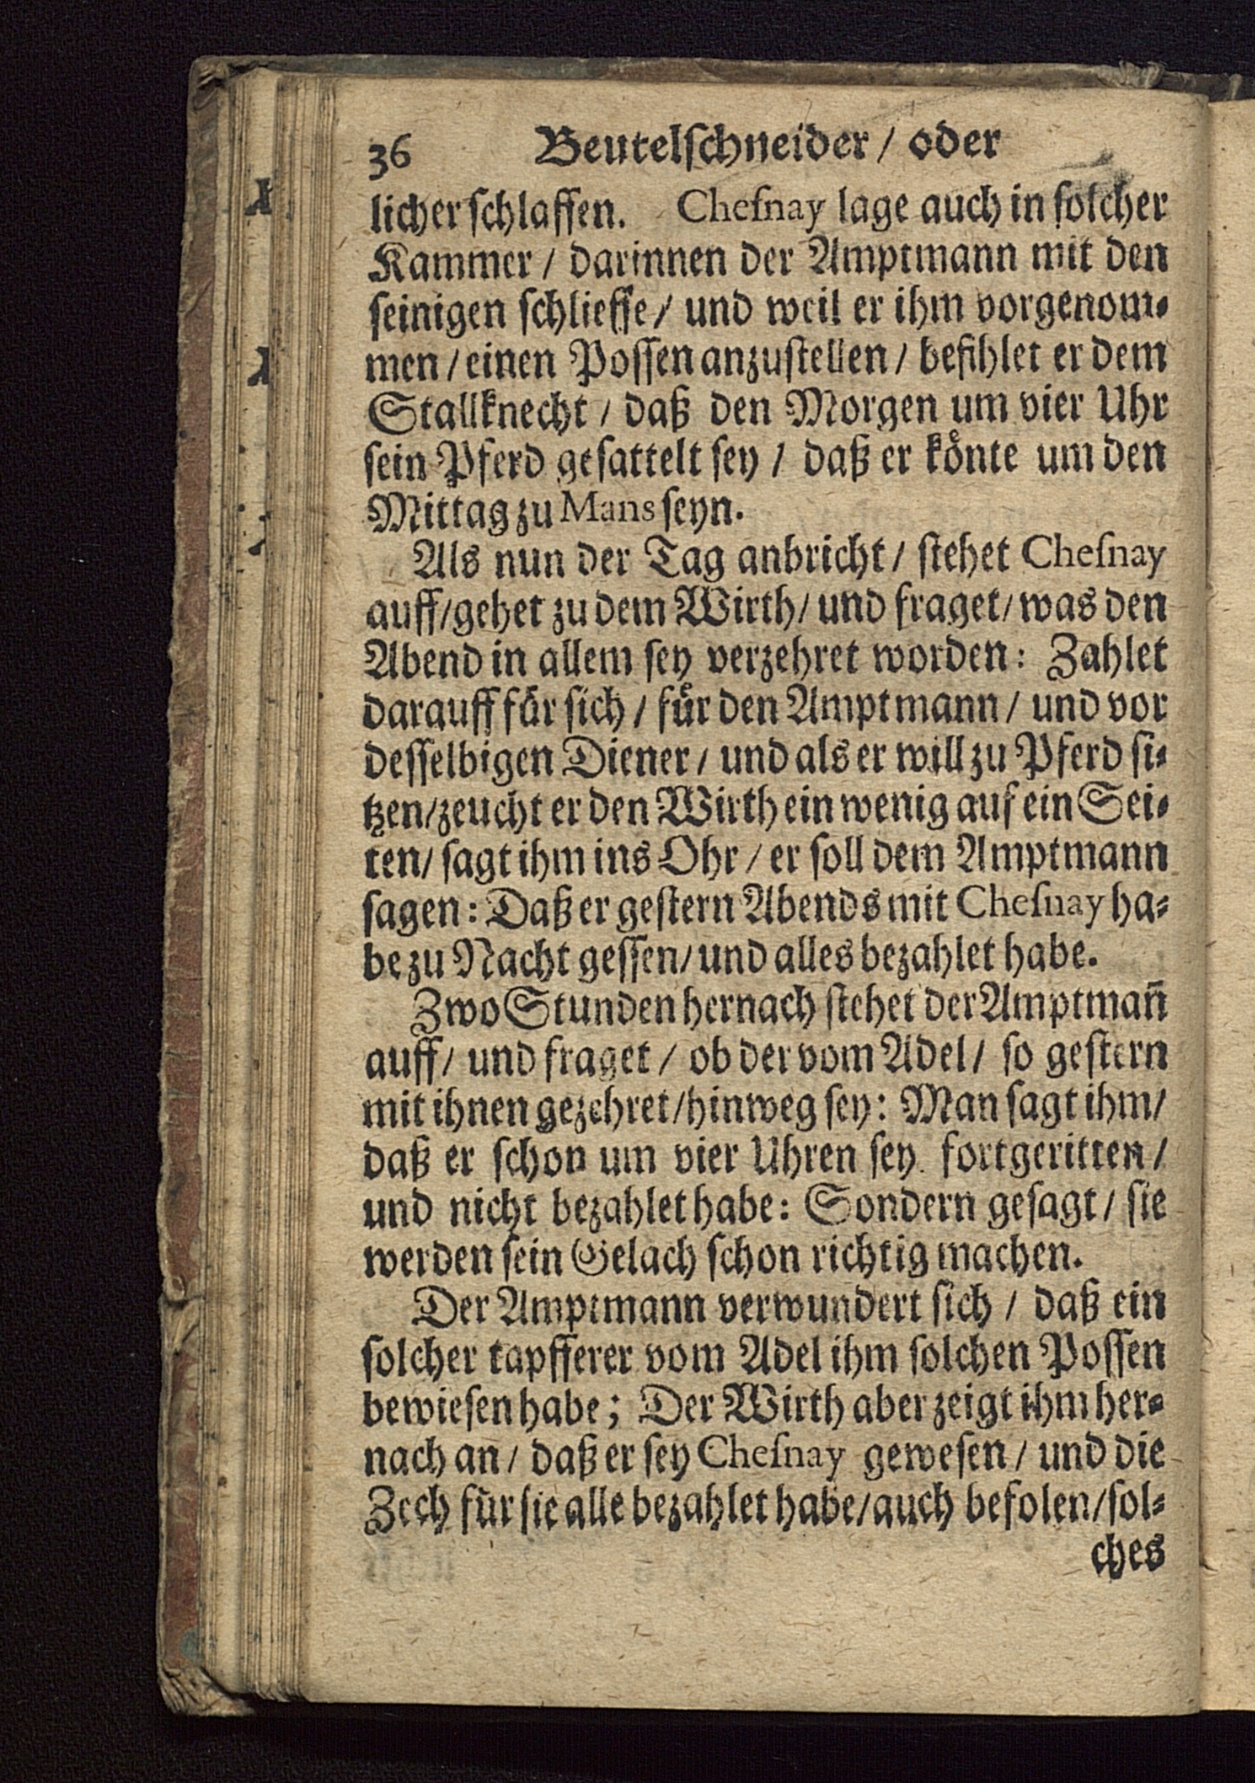 36 Beutelschneider / oder
licher schlaffen. Cheſnay lage auch in solcher
Kammer / darinnen der Amptmann mit den
seinigen schlieffe / und weil er ihm vorgenom-
men / einen Possen anzustellen / befihlet er dem
Stallknecht / daß den Morgen um vier Uhr
sein Pferd gesattelt sey / daß er koͤnte um den
Mittag zu Mans seyn.
Als nun der Tag anbricht / stehet Cheſnay
auff / gehet zu dem Wirth / und fraget / was den
Abend in allem sey verzehret worden: Zahlet
darauff fuͤr sich / fuͤr den Amptmann / und vor
desselbigen Diener / und als er will zu Pferd si-
tzen / zeucht er den Wirth ein wenig auf ein Sei-
ten / sagt ihm ins Ohr / er soll dem Amptmann
sagen: Daß er gestern Abends mit Cheſnay ha-
be zu Nacht gessen / und alles bezahlet habe.
Zwo Stunden hernach stehet der Amptmañ
auff / und fraget / ob der vom Adel / so gestern
mit ihnen gezehret / hinweg sey: Man sagt ihm /
daß er schon um vier Uhren sey fortgeritten /
und nicht bezahlet habe: Sondern gesagt / sie
werden sein Gelach schon richtig machen.
Der Amptmann verwundert sich / daß ein
solcher tapfferer vom Adel ihm solchen Possen
bewiesen habe; Der Wirth aber zeigt ihm her-
nach an / daß er sey Cheſnay gewesen / und die
Zech fuͤr sie alle bezahlet habe / auch befolen / sol-
ches